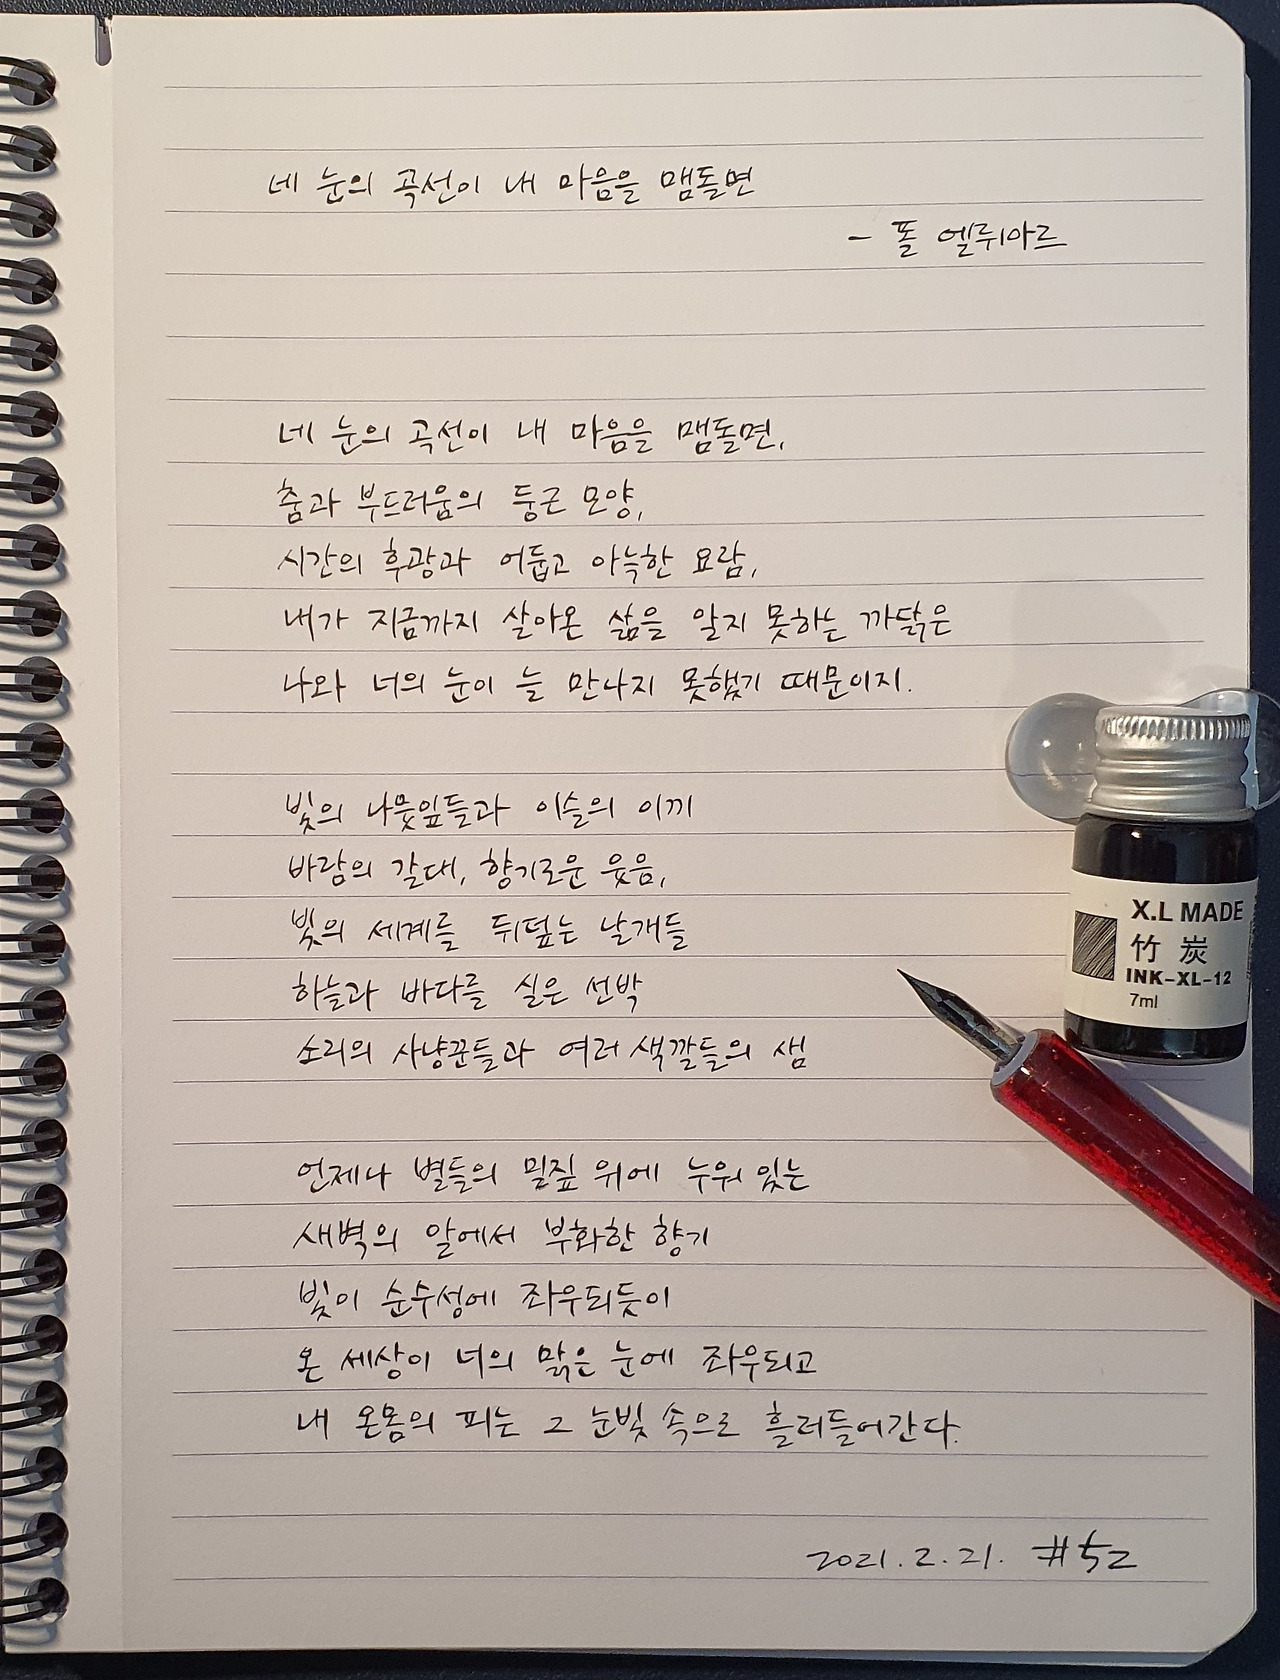 네 눈의 곡선이 내 마음을 맴돌면
- 폴 엘뤼아르
네 눈의 곡선이 내 마음을 맴돌면,
춤과 부드러움의 둥근 모양,
시간의 후광과 어둡고 아늑한 요람,
내가 지금까지 살아온 삶을 알지 못하는 까닭은
나와 너의 눈이 늘 만나지 못했기 때문이지.
빛의 나뭇잎들과 이슬의 이끼
바람의 갈대, 향기로운 웃음,
빛의 세계를 뒤덮는 날개들
하늘과 바다를 실은 선박
소리의 사냥꾼들과 여러 색깔들의 샘
언제나 별들의 밀짚 위에 누워 있는
새벽의 알에서 부화한 향기
빛이 순수성에 좌우되듯이
온 세상이 너의 맑은 눈에 좌우되고
내 온몸의 피는 그 눈빛 속으로 흘러들어간다.
2021.2.21. #52
X.L MADE
竹 炭
INK-XL-12
7ml